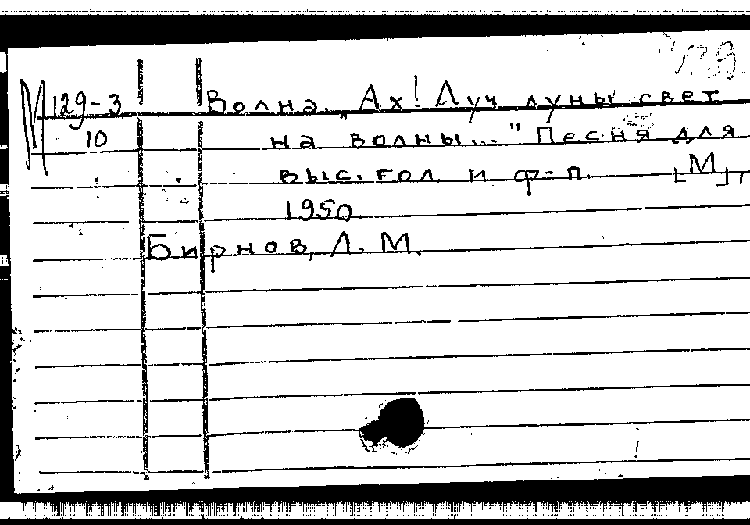 М 129-3 Волна. „Ах! Луч луны свет
10 на волны..." Песня для
выс. гол. и ф-п. [М],
1950.
Бирнов, Л. М.